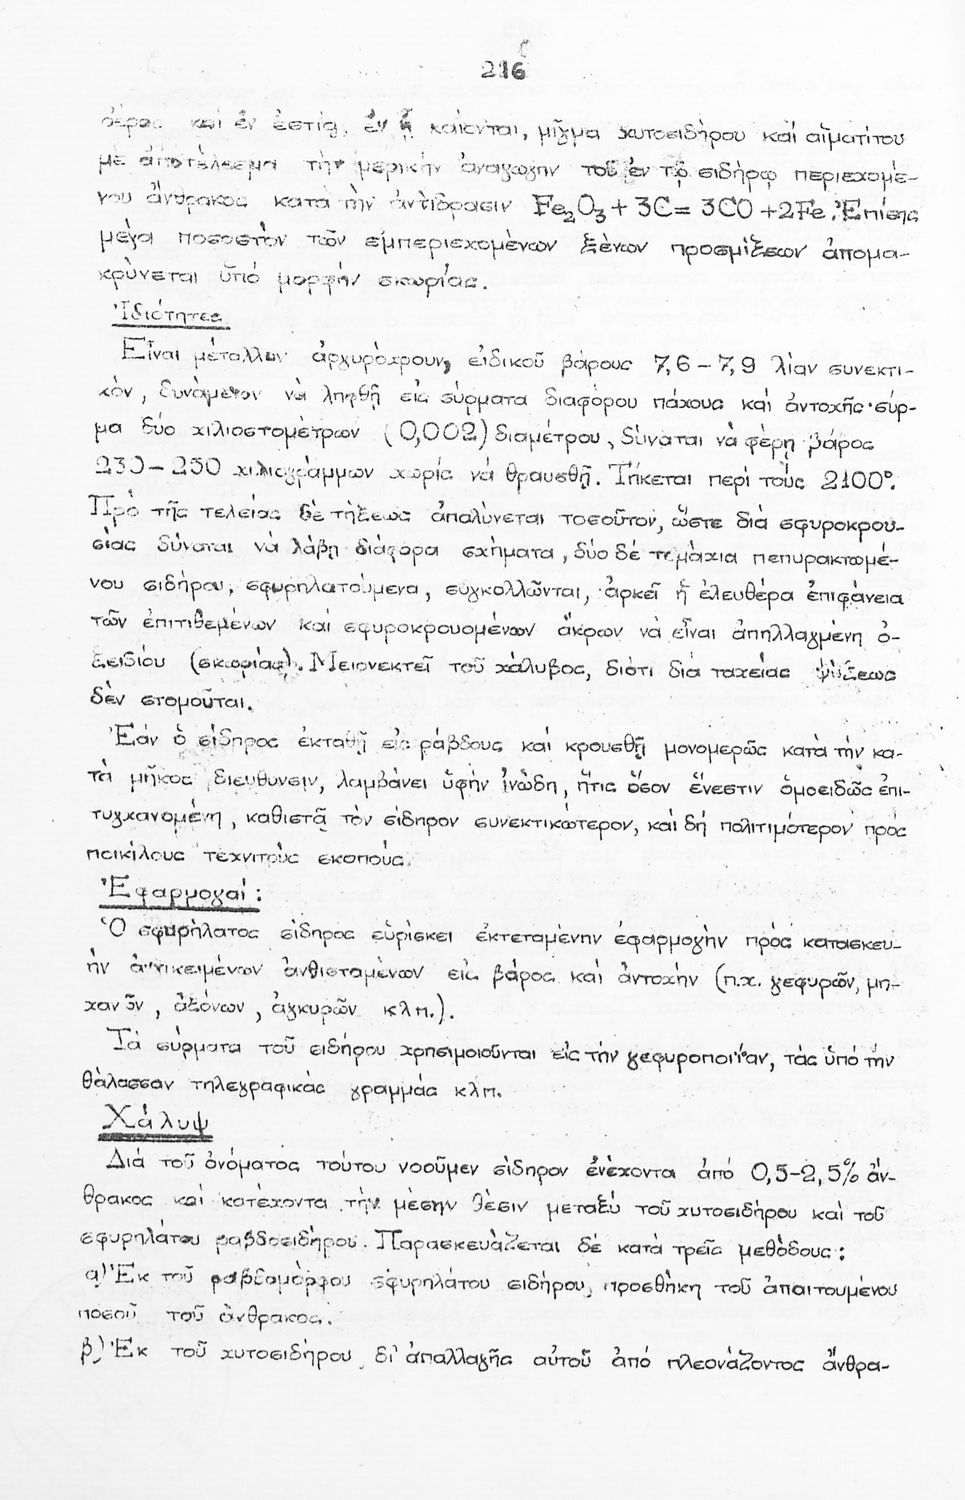 216
ἀέρος καί ἐν ἑστίᾳ, ἐν ᾗ καίονται, μῖγμα χυτοσιδήρου καί αἱματίτου
μέ ἀποτέλεσμα τήν μερικήν ἀναγωγήν τοῦ ἐν τῷ σιδήρῳ περιεχομέ-
νου ἄνθρακος κατά τήν ἀντίδρασιν Fe₂O₃ + 3C = 3CO + 2Fe. Ἐπίσης
μέγα ποσοστόν τῶν ἐμπεριεχομένων ξένων προσμίξεων ἀπομα-
κρύνεται ὑπό μορφήν σκωρίας.
Ἰδιότητες
Εἶναι μέταλλον ἀργυρόχρουν, εἰδικοῦ βάρους 7,6 – 7,9 λίαν συνεκτι-
κόν, δυνάμενον νά ληφθῇ εἰς σύρματα διαφόρου πάχους καί ἀντοχῆς· σύρ-
μα δύο χιλιοστομέτρων (0,002) διαμέτρου, δύναται νά φέρῃ βάρος
230 – 250 χιλιογράμμων χωρίς νά θραυσθῇ. Τήκεται περί τούς 2100°.
Πρό τῆς τελείας δέ τήξεως ἁπαλύνεται τοσοῦτον, ὥστε διά σφυροκρου-
σίας δύναται νά λάβῃ διάφορα σχήματα, δύο δέ τεμάχια πεπυρακτωμέ-
νου σιδήρου, σφυρηλατούμενα, συγκολλῶνται, ἀρκεῖ ἡ ἐλευθέρα ἐπιφάνεια
τῶν ἐπιτιθεμένων καί σφυροκρουομένων ἄκρων νά εἶναι ἀπηλλαγμένη ὀ-
ξειδίου (σκωρίας). Μειονεκτεῖ τοῦ χάλυβος, διότι διά ταχείας ψύξεως
δέν στομοῦται.
Ἐάν ὁ σίδηρος ἐκταθῇ εἰς ράβδους καί κρουσθῇ μονομερῶς κατά τήν κα-
τά μῆκος διεύθυνσιν, λαμβάνει ὑφήν ἰνώδη, ἥτις ὅσον ἔνεστιν ὁμοειδῶς ἐπι-
τυγχανομένη, καθιστᾷ τόν σίδηρον συνεκτικώτερον, καί δή πολιτιμότερον πρός
ποικίλους τεχνιτούς σκοπούς.
Ἐφαρμογαί :
Ὁ σφυρήλατος σίδηρος εὑρίσκει ἐκτεταμένην ἐφαρμογήν πρός κατασκευ-
ήν ἀντικειμένων ἀνθισταμένων εἰς βάρος καί ἀντοχήν (π.χ. γεφυρῶν, μη-
χανῶν, ἀξόνων, ἀγκυρῶν κλπ.).
Τά σύρματα τοῦ σιδήρου χρησιμοιοῦνται εἰς τήν γεφυροποιΐαν, τάς ὑπό τήν
θάλασσαν τηλεγραφικάς γραμμάς κλπ.
Χάλυψ
Διά τοῦ ὀνόματος τούτου νοοῦμεν σίδηρον ἐνέχοντα ἀπό 0,5-2,5% ἄν-
θρακος καί κατέχοντα τήν μέσην θέσιν μεταξύ τοῦ χυτοσιδήρου καί τοῦ
σφυρηλάτου ραβδοσιδήρου. Παρασκευάζεται δέ κατά τρεῖς μεθόδους :
α) Ἐκ τοῦ ραβδομόρφου σφυρηλάτου σιδήρου, προσθήκῃ τοῦ ἀπαιτουμένου
ποσοῦ τοῦ ἄνθρακος.
β) Ἐκ τοῦ χυτοσιδήρου, δι' ἀπαλλαγῆς αὐτοῦ ἀπό πλεονάζοντος ἄνθρα-